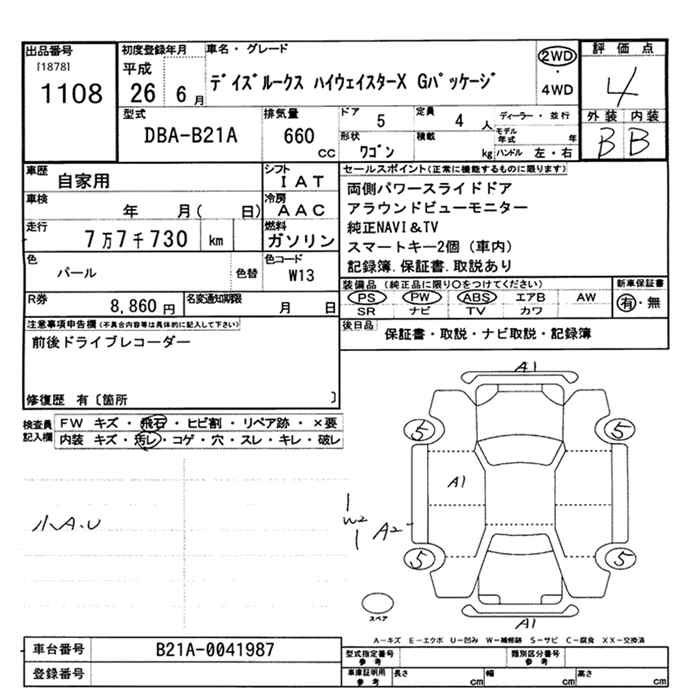 出品番号
[1878]
1108
初度登録年月
平成
26 6月
車名・グレード
デイズルークス ハイウェイスターX Gパッケージ
2WD
・
4WD
評価点
4
外装 内装
B B
型式
DBA-B21A
排気量
660
cc
ドア
5
定員
4 人
ディーラー・並行
形状
ワゴン
積載
kg
モデル年式 年
ハンドル 左・右
車歴
自家用
シフト
IAT
車検
年 月( 日)
冷房
AAC
走行
7万7千730 km
燃料
ガソリン
色
パール
色替
色コード
W13
R券
8,860円
名変通知期限
月 日
セールスポイント(正常に機能するものに限ります)
両側パワースライドドア
アラウンドビューモニター
純正NAVI&TV
スマートキー2個(車内)
記録簿.保証書.取説あり
装備品(純正品に限り○をつけてください)
PS PW ABS エアB AW
SR ナビ TV カワ
新車保証書
有・無
後日品
保証書・取説・ナビ取説・記録簿
注意事項申告欄(不具合内容等は具体的に記入して下さい)
前後ドライブレコーダー
修復歴 有〔箇所 〕
検査員
記入欄
FW キズ・飛石・ヒビ割・リペア跡・×要
内装 キズ・汚レ・コゲ・穴・スレ・キレ・破レ
小A.U
A1
5
5
A1
W2
A2
5
5
スペア
A1
A−キズ E−エクボ U−凹み W−補修跡 S−サビ C−腐食 XX−交換済
車台番号
B21A-0041987
登録番号
型式指定番号
参考
類別区分番号
参考
車庫証明用
参考
長さ cm
幅 cm
高さ cm